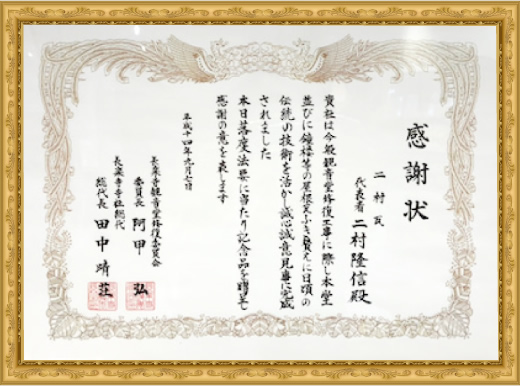 感謝状
二村瓦
代表者 二村隆信殿
貴社は今般観音堂修復工事に際し本堂
並びに鐘楼等の屋根瓦ふき替えに日頃の
伝統の技術を活かし誠心誠意見事に完成
されました
本日落慶法要に当たり記念品を贈呈し
感謝の意を表します
平成十四年九月七日
長楽寺観音堂修復委員会
委員長 阿甲 弘
長楽寺寺社総代
総代長 田中晴